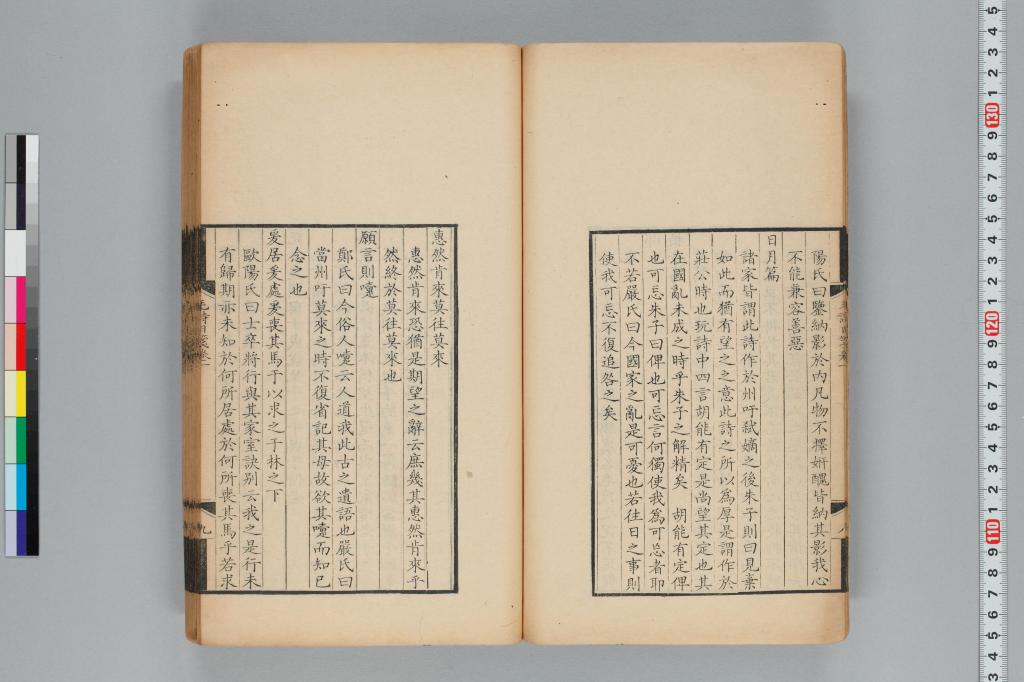 陽氏曰鑒納影於內凡物不擇妍醜皆納其影我心
不能兼容善惡
日月篇
諸家皆謂此詩作於州吁弑嫡之後朱子則曰見棄
如此而猶有望之之意此詩之所以為厚是謂作於
莊公時也玩詩中四言胡能有定是尚望其定也其
在國亂未成之時乎朱子之解精矣 胡能有定俾
也可忘朱子曰俾也可忘言何獨使我為可忘者耶
不若嚴氏曰今國家之亂是可憂也若往日之事則
使我可忘不復追咎之矣
惠然肯來莫往莫來
惠然肯來恐猶是期望之辭云庶幾其惠然肯來乎
然終於莫往莫來也
願言則嚏
鄭氏曰今俗人嚏云人道我此古之遺語也嚴氏曰
當州吁莫來之時不復省記其母故欲其嚏而知已
念之也
爰居爰處爰喪其馬于以求之于林之下
歐陽氏曰士卒將行與其家室訣別云我之是行未
有歸期亦未知於何所居處於何所喪其馬乎若求
九